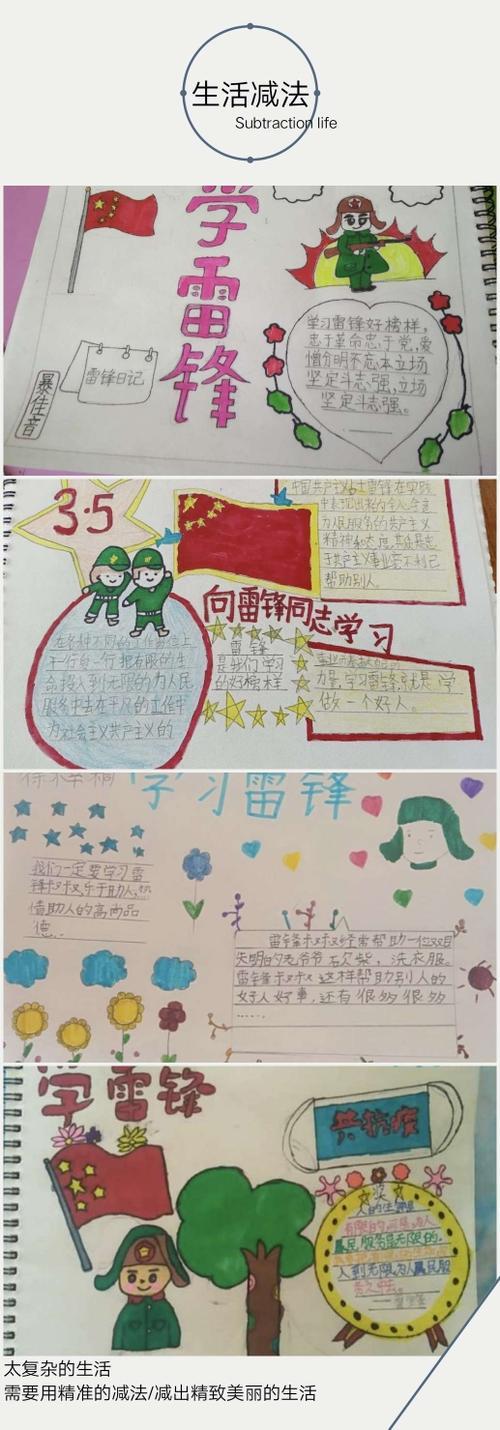 生活减法
Subtraction life
学雷锋
雷锋日记
暴佳音
学习雷锋好榜样,
忠于革命忠于党,爱
憎分明不忘本立场
坚定斗志强,立场
坚定斗志强。
3·5
中国共产主义战士雷锋在实践
中表现出来的令人
为人民服务的共产主义
精神和态度
于共产主义事业
帮助别人。
向雷锋同志学习
雷锋
是我们学习
的好榜样
在各种不同的工作岗位上
干一行爱一行把有限的生
命投入到无限的为人民
服务中去在平凡的工作中
为社会主义共产主义的
力量,学习雷锋,就是学
做一个好人。
学习雷锋
我们一定要学习雷
锋叔叔乐于助人,
借助人的高尚品
德.
雷锋叔叔经常帮助一位双目
失明的老爷爷
洗衣服。
雷锋叔叔这样帮助别人的
好人好事,还有很多很多
......
学雷锋
共抗疫
人的生命是
有限的可是为人
民服务是无限的.
入到无限为人民服
太复杂的生活
需要用精准的减法/减出精致美丽的生活